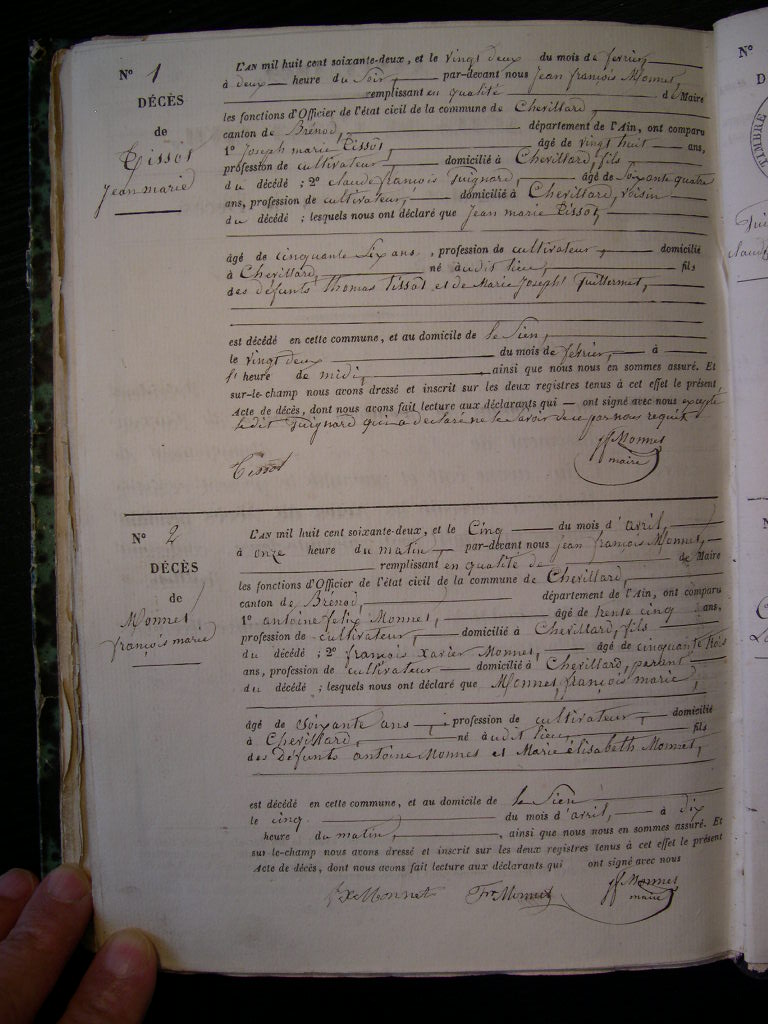 N° 1
DÉCÈS
de
Tissot
Jean marie
L'AN mil huit cent soixante-deux, et le vingt deux du mois de fevrier,
à deux heure du Soir, par-devant nous Jean françois Monnet
remplissant en qualité de Maire
les fonctions d'Officier de l'état civil de la commune de Chevillard,
canton de Brénod, département de l'Ain, ont comparu
1° Joseph marie Tissot, âgé de vingt huit ans,
profession de cultivateur, domicilié à Chevillard, fils
du décédé ; 2° claude françois Guignard, âgé de soixante quatre
ans, profession de cultivateur, domicilié à Chevillard, voisin
du décédé ; lesquels nous ont déclaré que Jean marie Tissot,
âgé de cinquante Six ans, profession de cultivateur, domicilié
à Chevillard, né audit lieu, fils
des défunts Thomas Tissot et de Marie Joseph Guillermet,
est décédé en cette commune, et au domicile de le Sien,
le vingt deux du mois de fevrier, à
l' heure de midi, ainsi que nous nous en sommes assuré. Et
sur-le-champ nous avons dressé et inscrit sur les deux registres tenus à cet effet le présent
Acte de décès, dont nous avons fait lecture aux déclarants qui ont signé avec nous excepté
le dit Guignard qui a déclaré ne le savoir de ce par nous requis
Tissot
jf Monnet
maire
N° 2
DÉCÈS
de
Monnet
françois marie
L'AN mil huit cent soixante-deux, et le Cinq du mois d'avril,
à onze heure du matin, par-devant nous Jean françois Monnet,
remplissant en qualité de de Maire
les fonctions d'Officier de l'état civil de la commune de Chevillard,
canton de Brénod, département de l'Ain, ont comparu
1° antoine felix Monnet, âgé de trente cinq ans,
profession de cultivateur, domicilié à Chevillard, fils
du décédé ; 2° françois Xavier Monnet, âgé de cinquante trois
ans, profession de cultivateur domicilié à Chevillard, parent
du décédé ; lesquels nous ont déclaré que Monnet, françois marie,
âgé de Soixante ans, profession de cultivateur, domicilié
à Chevillard, né audit lieu, fils
des Défunts antoine Monnet et Marie élisabeth Monnet,
est décédé en cette commune, et au domicile de le Sien
le cinq du mois d'avril, à dix
heure du matin, ainsi que nous nous en sommes assuré. Et
sur le-champ nous avons dressé et inscrit sur les deux registres tenus à cet effet le présent
Acte de décès, dont nous avons fait lecture aux déclarants qui ont signé avec nous
fx Monnet
Fx Monnet
jf Monnet
maire
N°
D
TIMBRE
N